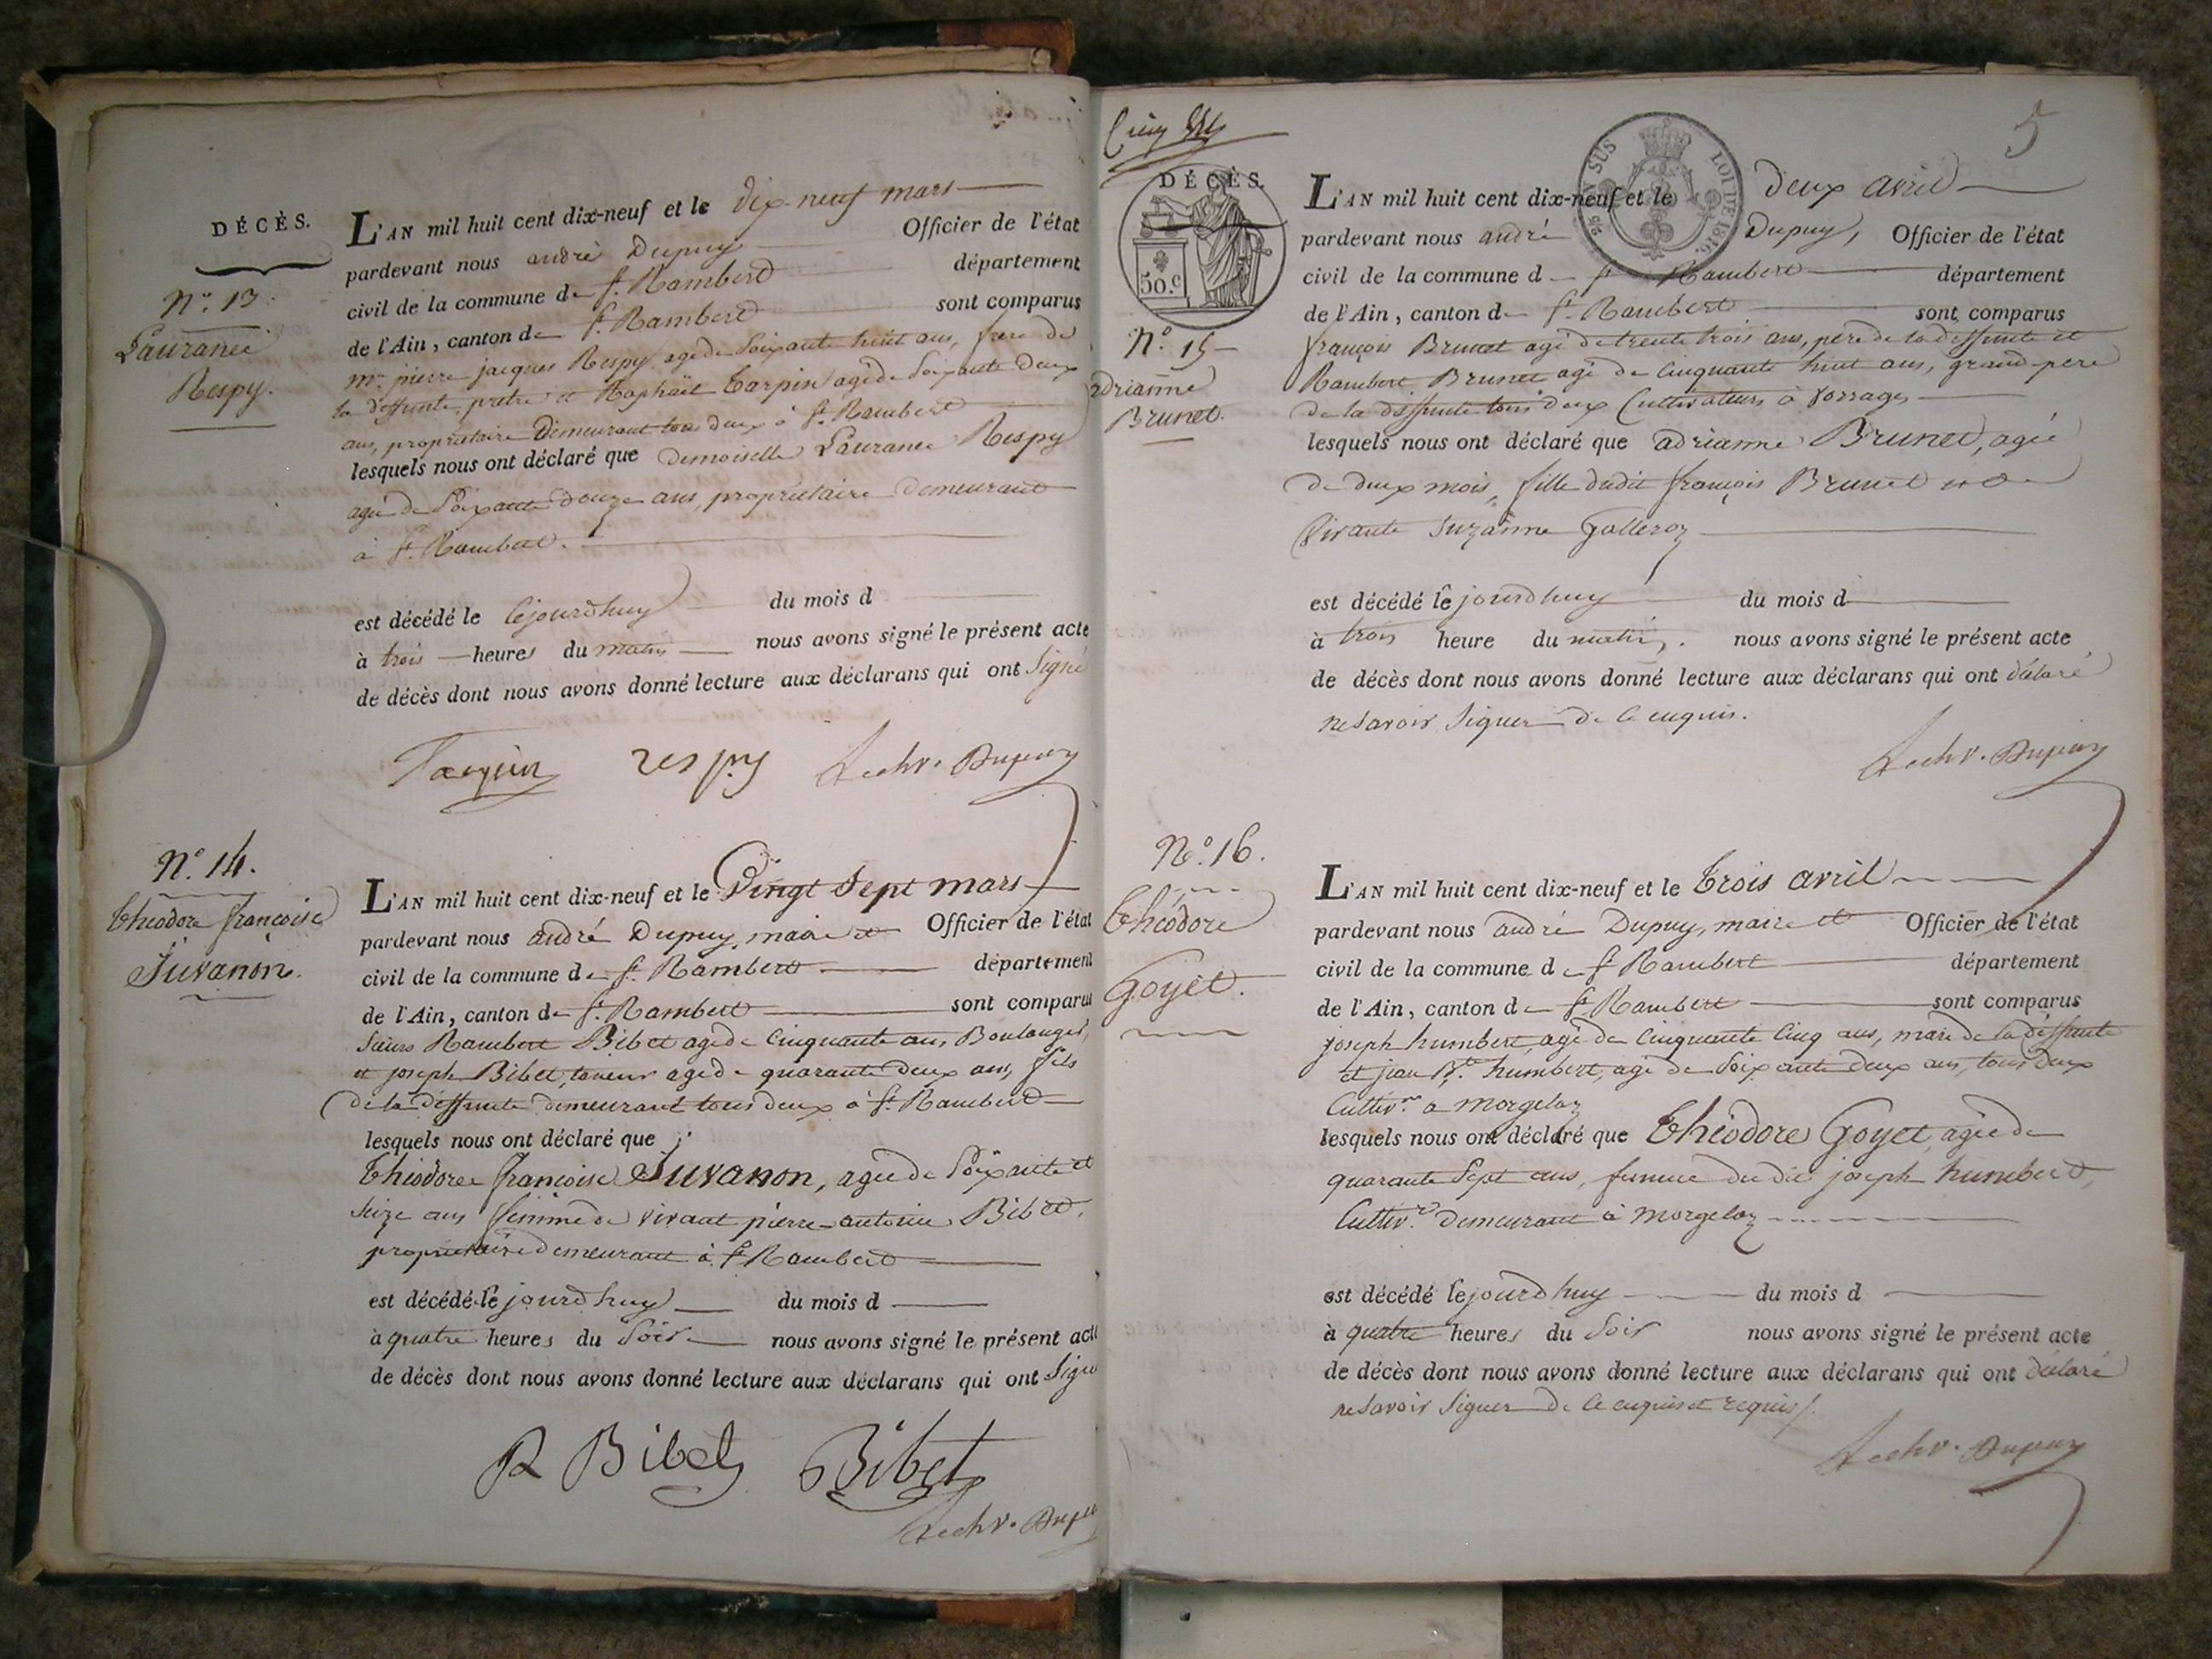 DÉCÈS.
N.° 13.
Lauranee
Respy.
L'AN mil huit cent dix-neuf et le dix-neuf mars
pardevant nous andré Dupuy Officier de l'état
civil de la commune de St. Rambert département
de l'Ain, canton de St. Rambert sont comparus
mr. pierre jacques Respy agé de Soixante huit ans, frere de
la deffunte, pretre et Raphaël Tarpin agé de Soixante deux
ans, propriétaire Demeurant tous deux à St. Rambert
lesquels nous ont déclaré que demoiselle Lauranee Respy
agée de Soixante douze ans, propriétaire demeurant
à St. Rambert.
est décédé le cejourdhuy du mois d
à trois heures du matin nous avons signé le présent acte
de décès dont nous avons donné lecture aux déclarans qui ont Signé
respy Dupuy
N.° 14.
théodore francoise
Juvanon.
L'AN mil huit cent dix-neuf et le Vingt Sept mars
pardevant nous andré Dupuy, maire et Officier de l'état
civil de la commune de St. Rambert département
de l'Ain, canton de St. Rambert sont comparus
Sieurs Rambert Bibet agé de Cinquante ans, Boulanger,
et joseph Bibet, taneur agé de quarante deux ans, fils
de la deffunte demeurant tous deux à St. Rambert
lesquels nous ont déclaré que
théodore francoise Juvanon, agée de Soixante et
Seize ans femme de vivant pierre-antoine Bibet,
propriétaire demeurant à St. Rambert
est décédé le jourdhuy du mois d
à quatre heures du Soir nous avons signé le présent acte
de décès dont nous avons donné lecture aux déclarans qui ont Signé
R Bibet Bibet
Dupuy
5
DÉCÈS.
50.c
LOI DE 1816.
N.° 15
adrianne
Brunet.
L'AN mil huit cent dix-neuf et le deux avril
pardevant nous andré Dupuy, Officier de l'état
civil de la commune d St. Rambert département
de l'Ain, canton d St. Rambert sont comparus
françois Brunet agé de trente trois ans, père de la deffunte et
Rambert Brunet agé de Cinquante huit ans, grand-pere
de la deffunte tous deux Cultivateurs à
lesquels nous ont déclaré que adrianne Brunet, agée
de deux mois, fille dudit françois Brunet et de
Vivante Suzanne Galleroz
est décédé le jourdhuy du mois d
à trois heure du matin, nous avons signé le présent acte
de décès dont nous avons donné lecture aux déclarans qui ont déclaré
ne Savoir Signer de ce enquis.
Dupuy
N.° 16.
théodore
Goyet.
L'AN mil huit cent dix-neuf et le trois avril
pardevant nous andré Dupuy, maire et Officier de l'état
civil de la commune de St Rambert département
de l'Ain, canton de St Rambert sont comparus
joseph humbert, agé de Cinquante Cinq ans, mari de la deffunte
et jean Bte. humbert, agé de Soixante deux ans, tous deux
Cultivrs. a Morgelaz
lesquels nous ont déclaré que théodore Goyet agée de
quarante Sept ans, femme du dit joseph humbert,
Cultivr. demeurant à Morgelaz
est décédé le jourdhuy du mois d
à quatre heures du Soir nous avons signé le présent acte
de décès dont nous avons donné lecture aux déclarans qui ont déclaré
ne Savoir Signer de ce enquis et requis.
Dupuy